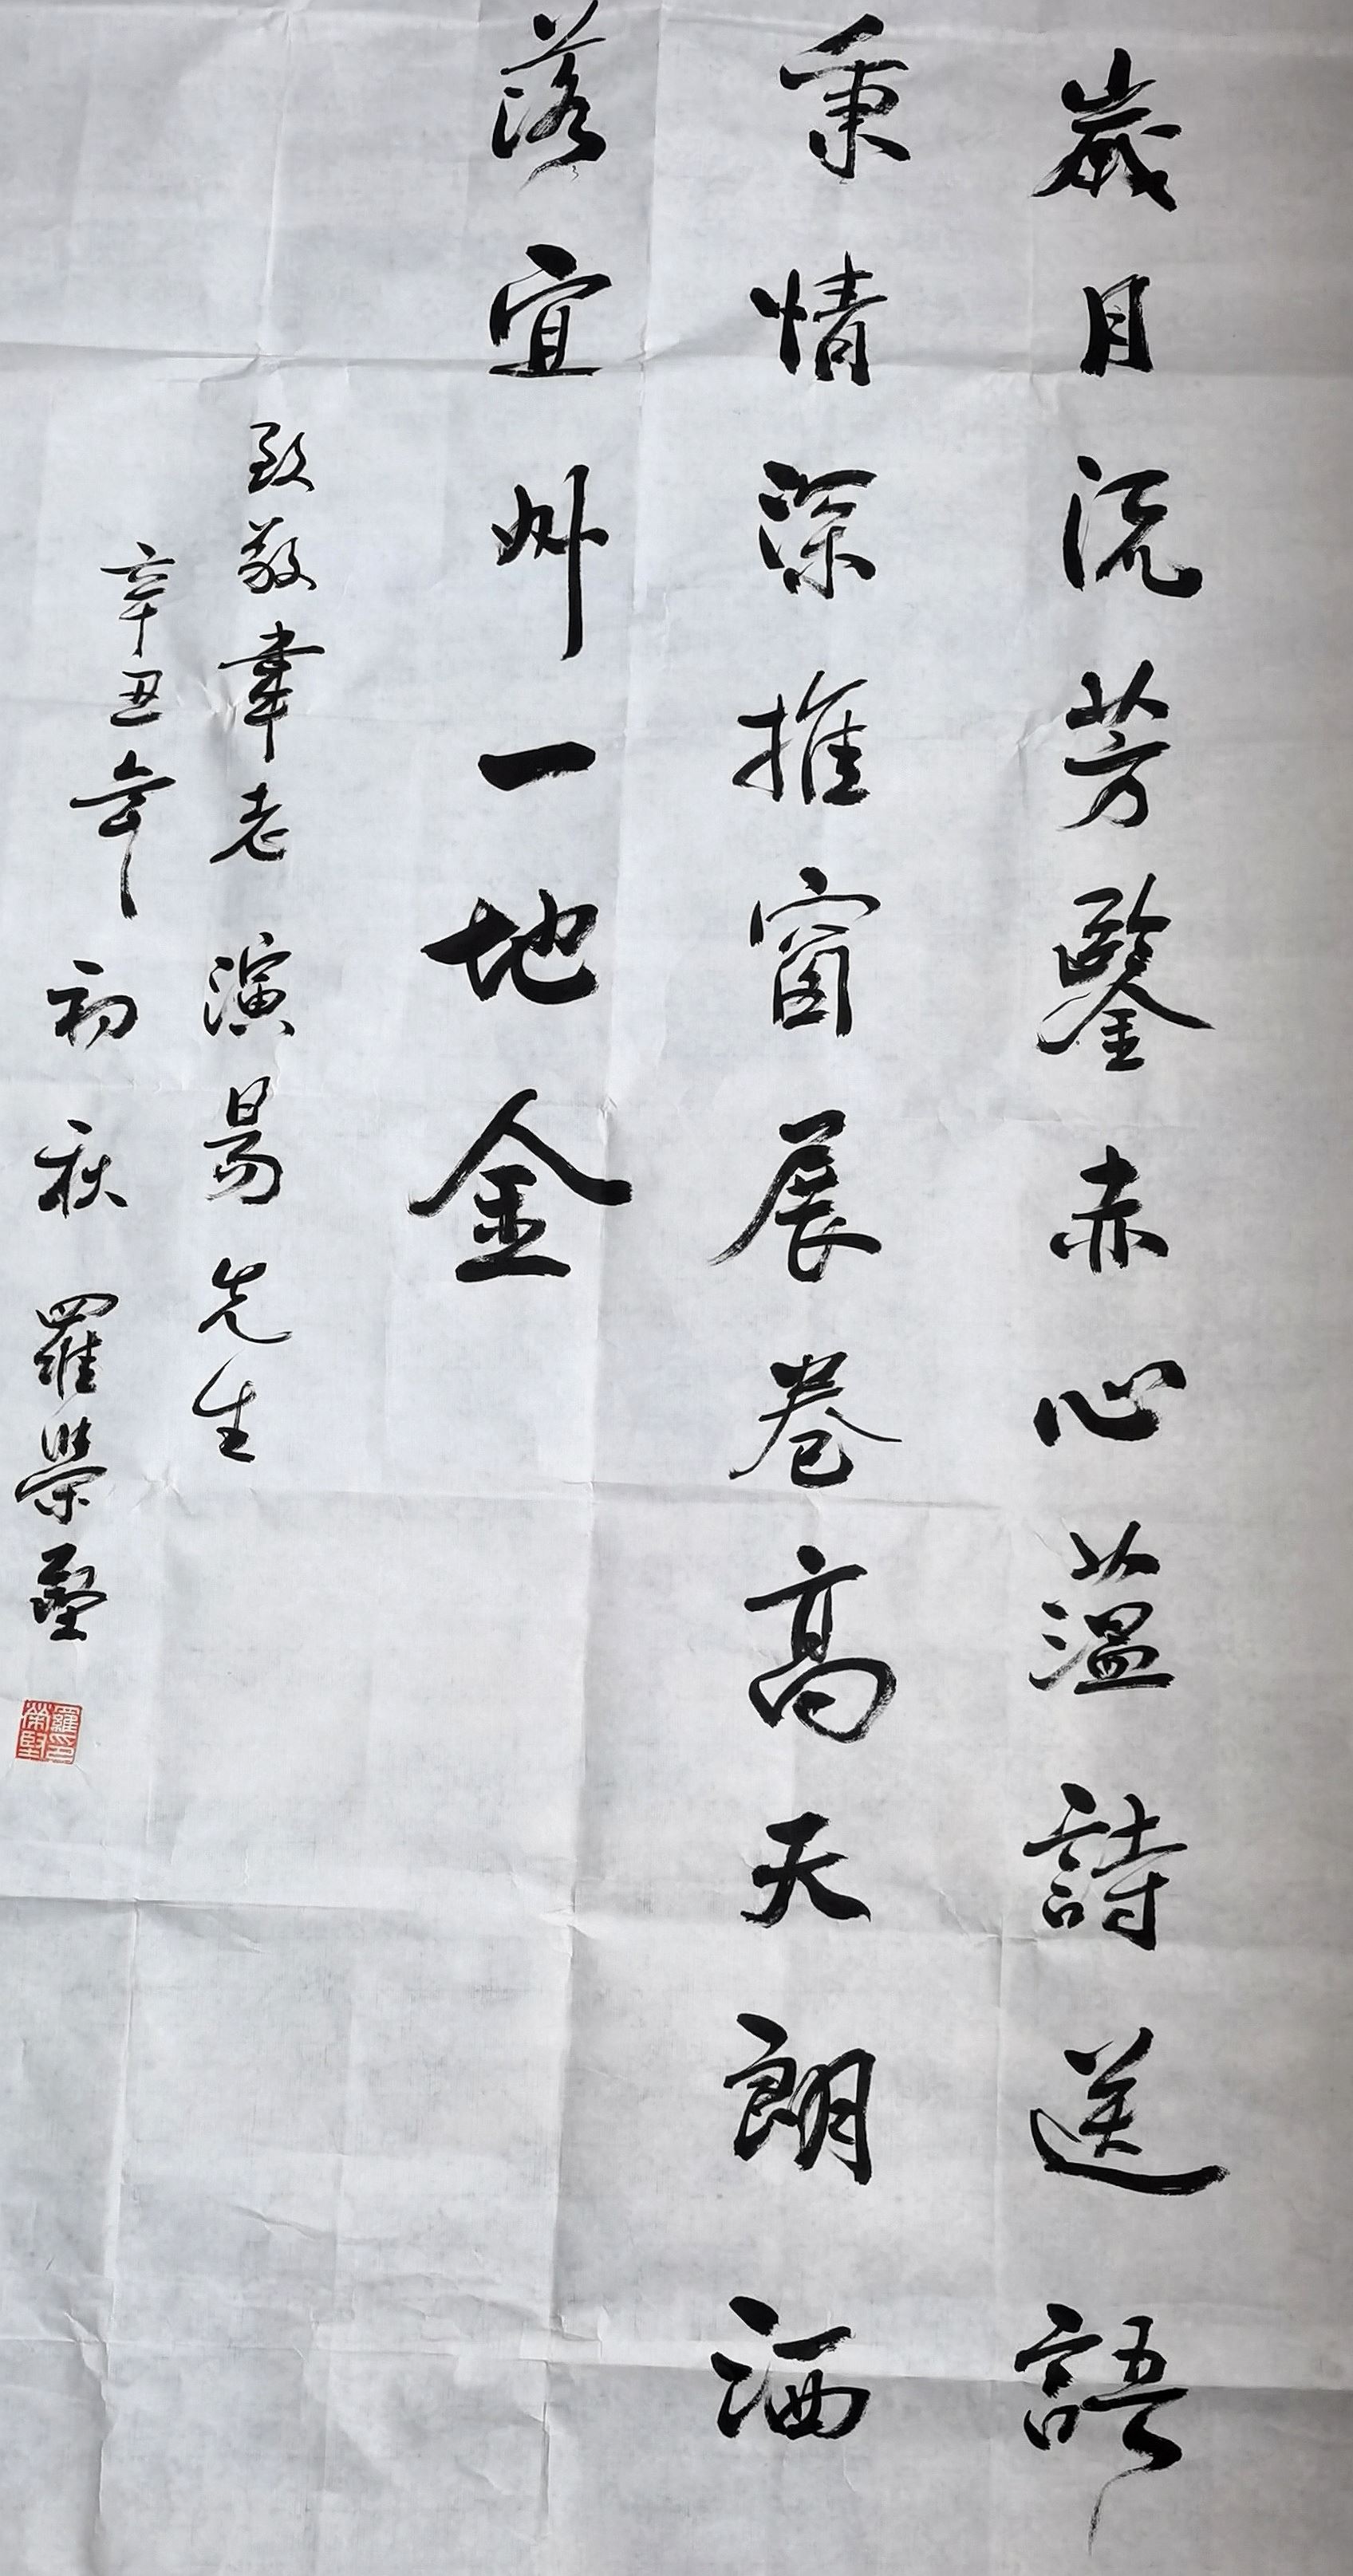 歲月流芳鑒赤心蕰詩送語
秉情深推窗展卷高天朗洒
落宜州一地金
致敬韋老演易先生
辛丑年初秋羅榮堅